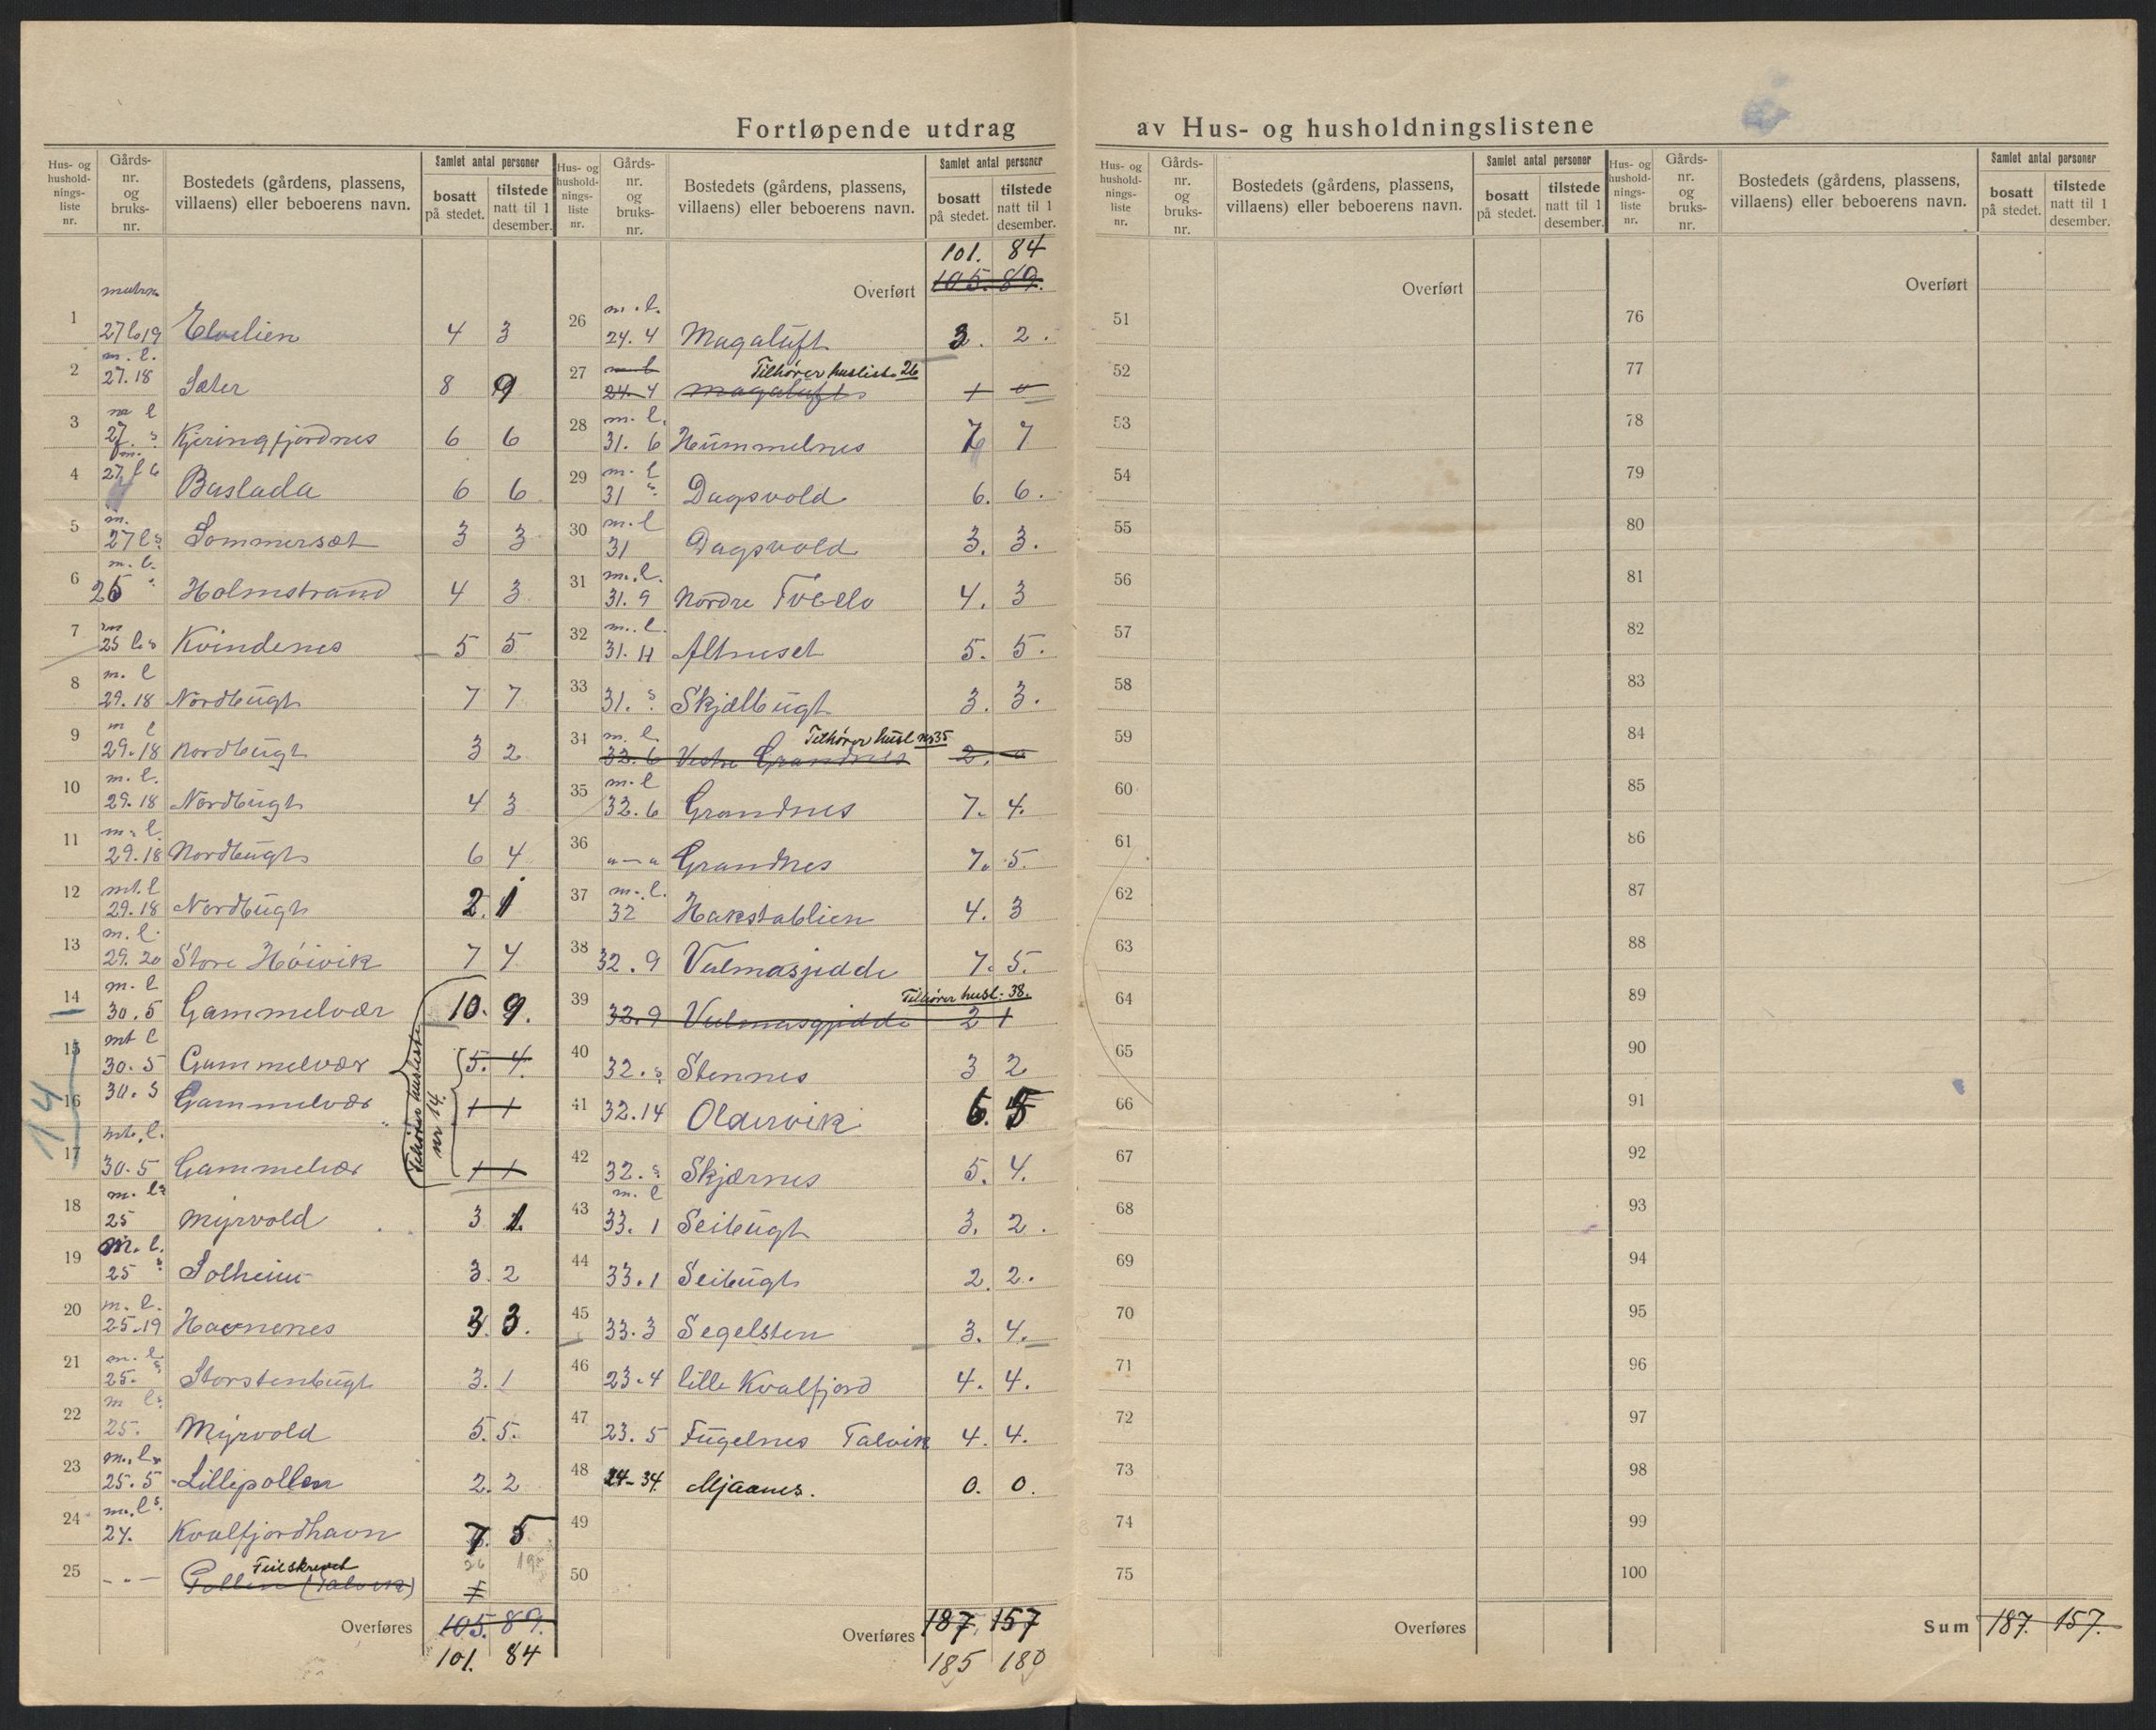 Fortløpende utdrag av Hus- og husholdningslistene
Hus- og husholdnings-liste nr. Gårds-nr. og bruks-nr. Bostedets (gårdens, plassens, villaens) eller beboerens navn. Samlet antal personer bosatt på stedet. tilstede natt til 1 desember.
1 27 19 Elvelien 4 3
2 m. l. 27.18 Sæter 8 9
3 27. Kjeringfjordnes 6 6
4 27 Baslada 6 6
5 m. 27 Sommersæt 3 3
6 m. l. 26 Holmstrand 4 3
7 25 Kvindenes 5 5
8 m. l 29.18 Nordbugt 7 7
9 m l 29.18 Nordbugt 3 2
10 m. l. 29.18 Nordbugt 4 3
11 m. l. 29.18 Nordbugt 6 4
12 mt. l 29.18 Nordbugt 2. 1
13 m. l. 29.20 Store Høivik 7 4
14 m. l 30.5 Gammelvær 10. 9.
Tilhører husliste nr 14.
15 mt l 30.5 Gammelvær 5. 4.
16 30.5 Gammelvær 1 1
14
17 mt. l. 30.5 Gammelvær 1 1
18 m. l 25 Myrvold 3 1
19 m. l. 25 Solheim 3. 2
20 m. l. 25.19 Havnenes 3. 3.
21 m. l 25. Storstenbugt 3. 1
22 m l 25. Myrvold 5. 5.
23 m. l. 25.5 Lillepollen 2. 2
24 m. l 24. Kvalfjordhavn 7. 5
25 - " - Feilskrevet Pollen (Talvik)
Overføres 105. 89.
101. 84
Hus- og husholdnings-liste nr. Gårds-nr. og bruks-nr. Bostedets (gårdens, plassens, villaens) eller beboerens navn. Samlet antal personer bosatt på stedet. tilstede natt til 1 desember.
101. 84
Overført 105. 89.
26 m. l. 24. 4 Magaluft 3. 2.
27 m l 24. 4 Tilhører husliste 26 Magaluft 1 0
28 m. l. 31. 6 Hummelnes 7 7
29 m. l 31 Dagsvold 6. 6.
30 m. l 31 Dagsvold 3. 3.
31 m. l. 31. 9 Nordre Tverelv 4. 3
32 m. l. 31. 11 Althuset 5. 5.
33 31. Skjælbugt 3. 3.
34 m. l. 32. 6 Tilhører husl nr 35 Vestre Grandnes 2. 0
35 m. l 32. 6 Grandnes 7. 4.
36 "—" Grandnes 7. 5.
37 m. l. 32 Hakstablien 4. 3
38 32. 9 Valmasjidde 7. 5.
39 32. 9 Tilhører husl. 38. Valmasgjidde 2 1
40 32. Stennes 3 2
41 32.14 Oldervik 6. 5
42 32. Skjærnes 5. 4.
43 m. l 33. 1 Seibugt 3. 2.
44 33. 1 Seibugt 2. 2.
45 33. 3 Segelsten 3. 4.
46 23. 4 Lille Kvalfjord 4. 4.
47 23. 5 Fugelnes Talvik 4. 4.
48 24-34 Mjaanes. 0. 0.
49
50
Overføres 187. 157
185 180
Hus- og husholdnings-liste nr. Gårds-nr. og bruks-nr. Bostedets (gårdens, plassens, villaens) eller beboerens navn. Samlet antal personer bosatt på stedet. tilstede natt til 1 desember.
Overført
51
52
53
54
55
56
57
58
59
60
61
62
63
64
65
66
67
68
69
70
71
72
73
74
75
Overføres
Hus- og husholdnings-liste nr. Gårds-nr. og bruks-nr. Bostedets (gårdens, plassens, villaens) eller beboerens navn. Samlet antal personer bosatt på stedet. tilstede natt til 1 desember.
Overført
76
77
78
79
80
81
82
83
84
85
86
87
88
89
90
91
92
93
94
95
96
97
98
99
100
Sum 187. 157.